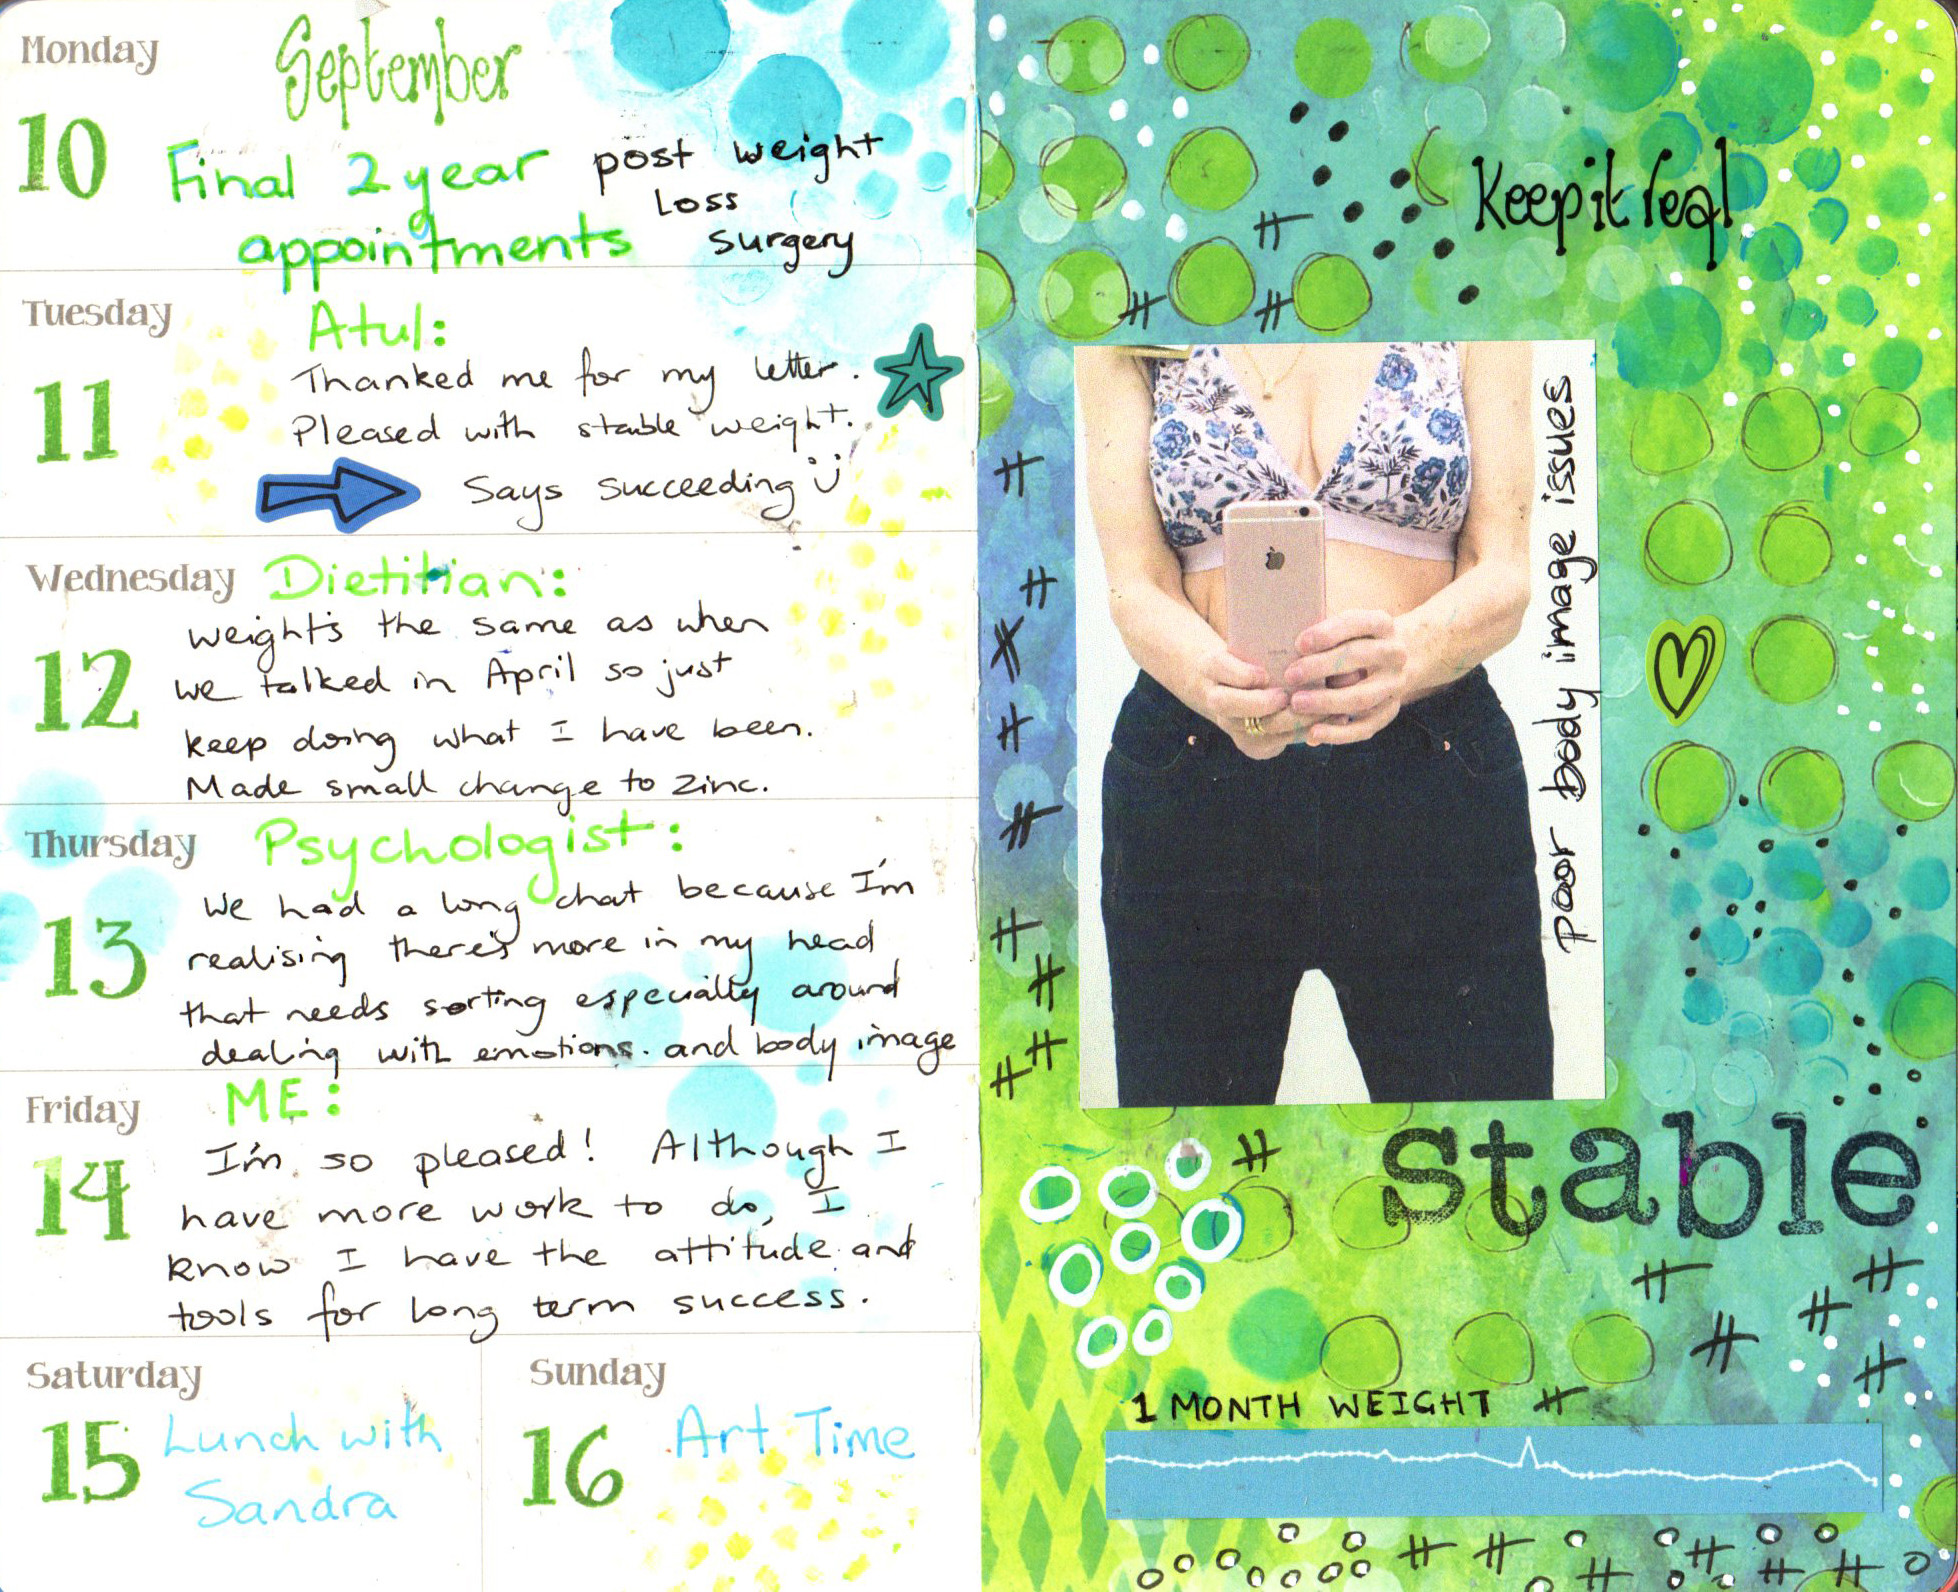 Monday
September
10
Final 2 year post weight
loss
appointments surgery
Tuesday
11
Atul:
Thanked me for my letter.
Pleased with stable weight.
Says succeeding
Wednesday
12
Dietitian:
weight's the same as when
we talked in April so just
keep doing what I have been.
Made small change to zinc.
Thursday
13
Psychologist:
We had a long chat because I'm
realising there's more in my head
that needs sorting especially around
dealing with emotions. and body image
Friday
14
ME:
I'm so pleased! Although I
have more work to do, I
know I have the attitude and
tools for long term success.
Saturday
15
Lunch with
Sandra
Sunday
16
Art Time
Keep it real
poor body image issues
stable
1 MONTH WEIGHT